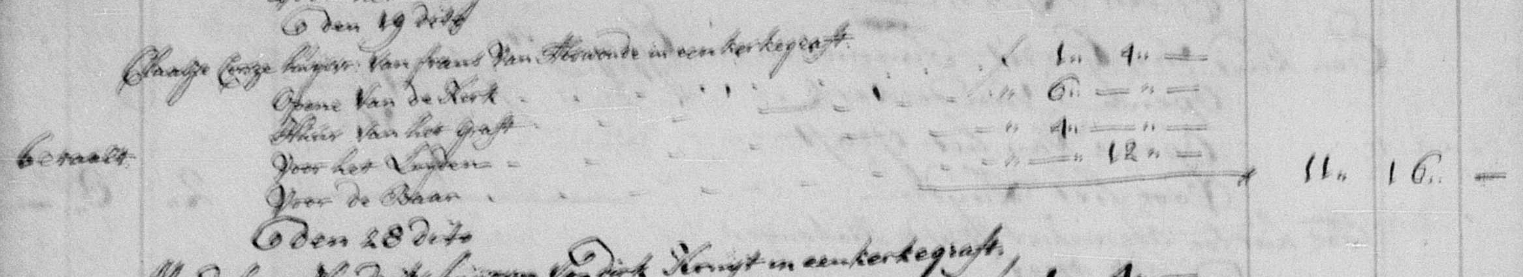 den 19 dito
Claasje Corsze huysvr: Van frans Van in een kerkegraft. 1„ 4„ —
Opene Van de Kerk „ 6„ — „ —
Huur Van het graft „ 4„ — „ —
betaalt.
Voor het Luyden „ — „ 12 „ —
11„ 16„ —
Voor de Baar
den 28 dito
Van dirk Kruijt in een kerkegraft.